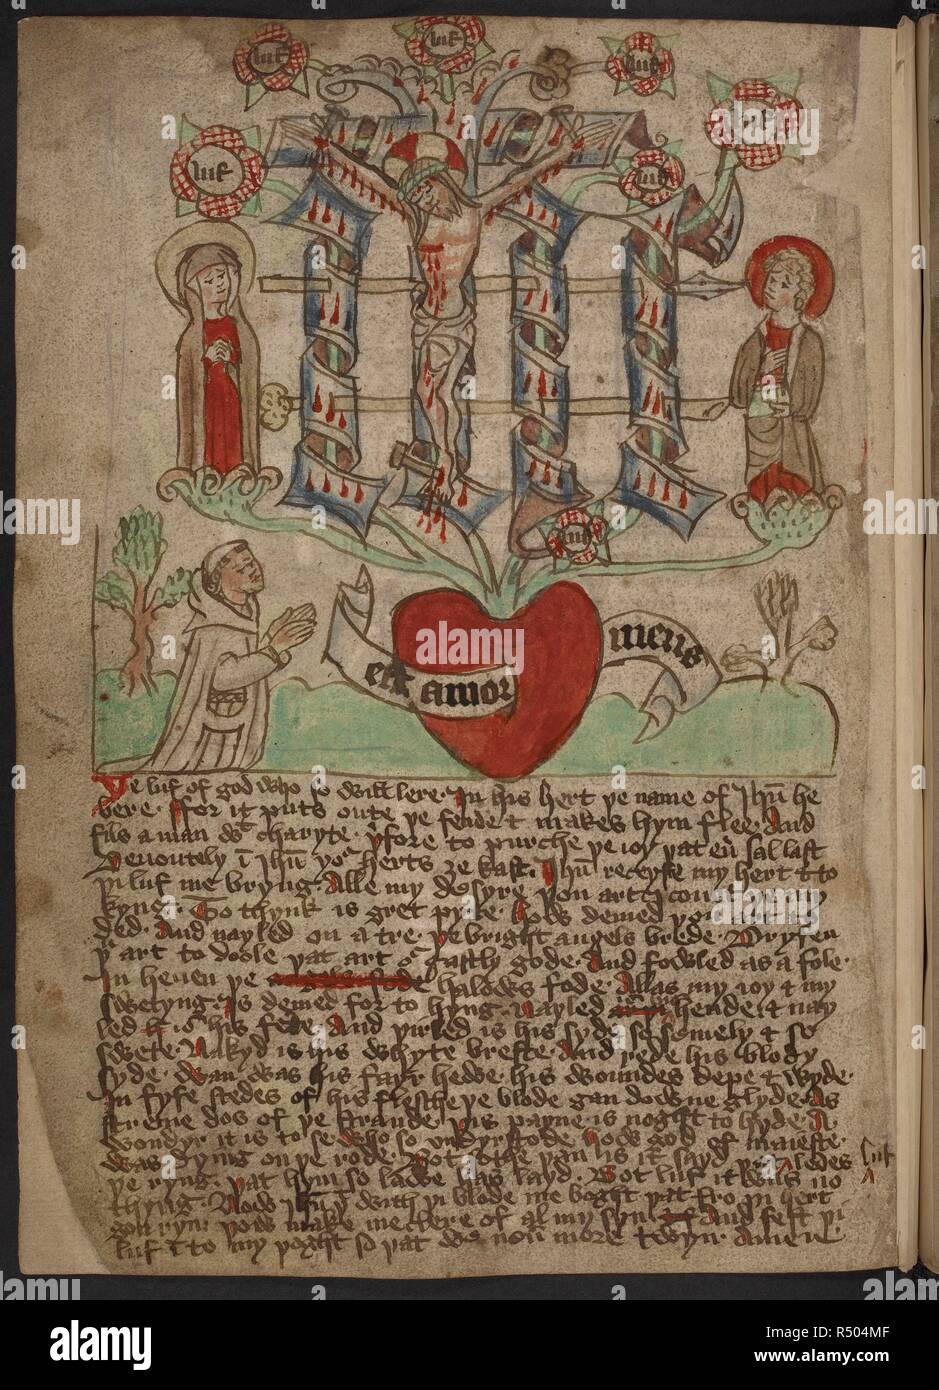 luf
luf
luf
luf
luf
luf
luf
est amor meus
Þe luf of god who so will lere. In his hert þe name of Ihū he
bere. ffor it puts oute þe fende & makes hym flee. And
fils a man wt charyte. þfore to purche þe ioy þat eū sal last
Deuoutely ī Ihū yor herts ze kast. Ihū receyfe my hert & to
þi luf me bryng. Alle my desyre þou art I couete þi
kyng. To thynk is gret pyte. how demed þou art to
ded. And nayled on a tre. þe bright angels brede. Dryfen
þu art to doole þat art or gastly gode. And fowled as a fole.
In heuen þe halows fode. Allas my ioy & my
swetyng. Is demed for to hyng. Nayled hende. & nay
led is his fete. And þirled is his syde so semely & so
swete. Nakyd is his whyte breste. And rede his blody
syde. Wan was his fayr hewe. his woundes depe & wyde.
In fyfe stedes of his flesche þe blode gan downe glyde. As
streme dos of þe strande. þis payne is noght to hyde. A
wondyr it is to se who so vndyrstode. how god of maieste.
was dying on þe rode. Bot sothe þan is it sayd. þat ledes luf
þe ryng. þat hym so lawe has layd. Bot luf it was no
thyng. Now Ihū þu with þi blode me boght þat fro þi hert
gon ryn. þow make me clere of al my syn. And fest þi
luf ī to my þoght so þat we nou more twyn. Amen
alamy
Image ID: R504MF
www.alamy.com